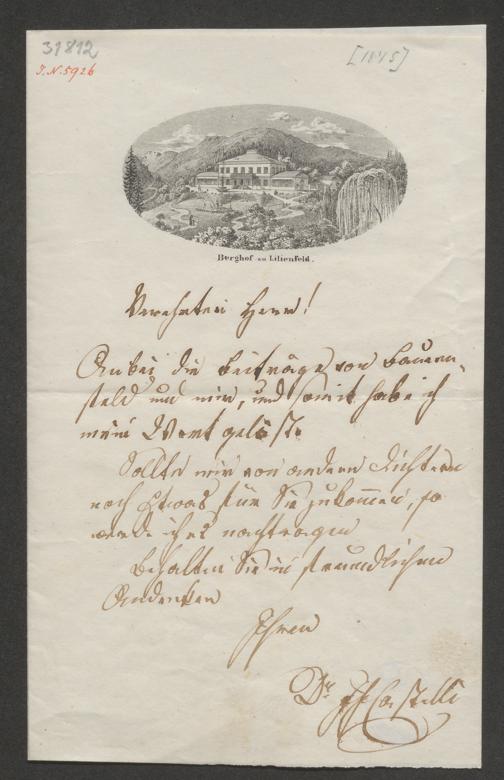 31812
I.N.5926
[1845]
Berghof zu Lilienfeld.
Verehrter Herr!
Anbei die Beiträge von Bauern-
feld und mir, und somit habe ich
mein Wort gelöst.
Sollte mir von andern Dichtern
noch Etwas für Sie zukommen, so
werde ich es nachtragen
Behalten Sie in freundlichem
Andenken
Ihren
Dr. J F Castelli